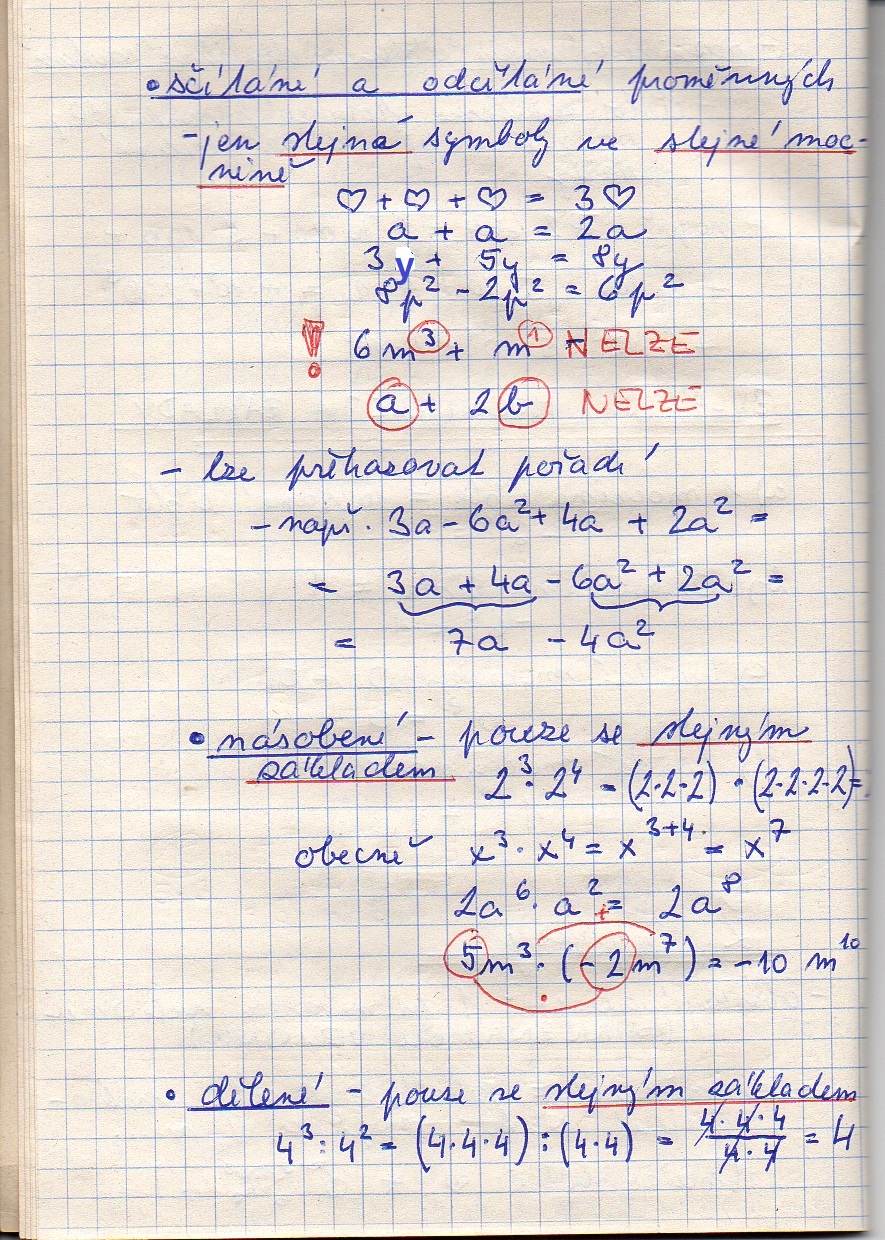 • sčítání a odčítání proměnných
- jen stejná symboly ve stejné moc-
nině
♡ + ♡ + ♡ = 3♡
a + a = 2a
3y + 5y = 8y
8p² - 2p² = 6p²
! 6m³ + m¹ - NELZE
a + 2b NELZE
- lze přehazovat pořadí
- např. 3a - 6a² + 4a + 2a² =
= 3a + 4a - 6a² + 2a² =
= 7a - 4a²
• násobení - pouze se stejným
základem 2³ · 2⁴ = (2·2·2) · (2·2·2·2) =
obecně x³ · x⁴ = x³⁺⁴ = x⁷
2a⁶ · a² = 2a⁸
+
5m³ · (-2m⁷) = -10 m¹⁰
·
• dělení - pouze se stejným základem
4³ : 4² = (4·4·4) : (4·4) = 4·4·4 / 4·4 = 4